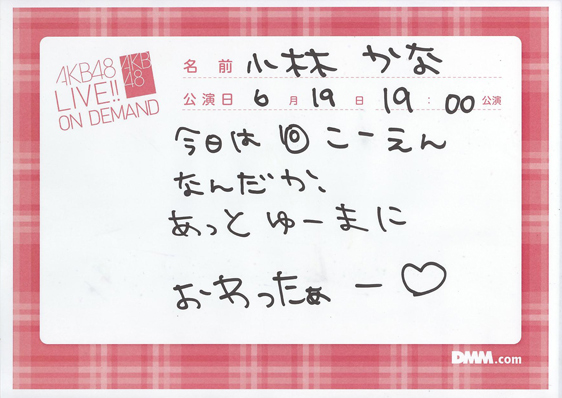 AKB48
LIVE!!
ON DEMAND
AKB
48
名前 小林 かな
公演日 6月19日 19:00公演
今日は⑩こーえん
なんだか、
あっとゆーまに
おわったぁー♡
DMM.com